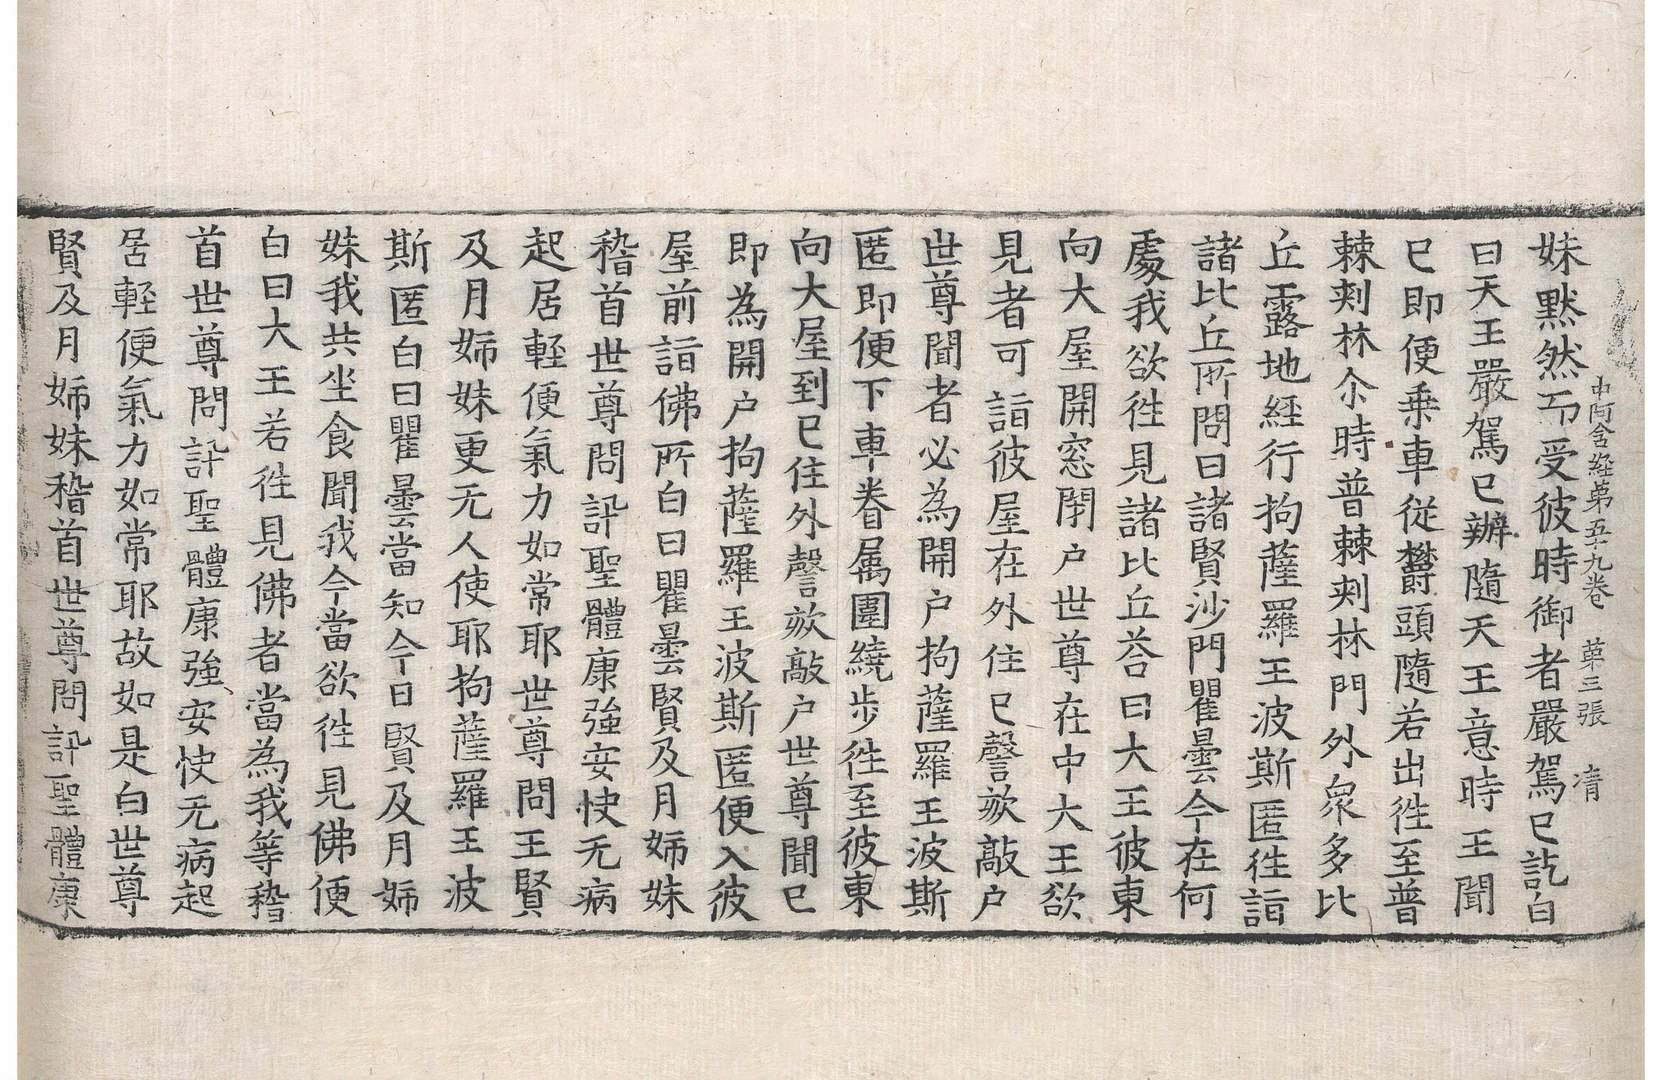 妹默然而受彼時御者嚴駕已訖白
中阿含經第五十九卷　第三張　清
曰天王嚴駕已辦隨天王意時王聞
已即便乗車從欝頭隨若出往至普
棘刺林尒時普棘刺林門外衆多比
丘露地經行拘薩羅王波斯匿往詣
諸比丘所問曰諸賢沙門瞿曇今在何
處我欲往見諸比丘荅曰大王彼東
向大屋開窓閉户世尊在中大王欲
見者可詣彼屋在外住已謦欬敲户
世尊聞者必為開户拘薩羅王波斯
匿即便下車眷属圍繞步往至彼東
向大屋到已住外謦欬敲户世尊聞已
即為開户拘薩羅王波斯匿便入彼
屋前詣佛所白曰瞿曇賢及月姉妹
稽首世尊問訊聖體康強安快无病
起居輕便氣力如常耶世尊問王賢
及月姉妹更无人使耶拘薩羅王波
斯匿白曰瞿曇當知今日賢及月姉
妹我共坐食聞我今當欲往見佛便
白曰大王若往見佛者當為我等稽
首世尊問訊聖體康強安快无病起
居輕便氣力如常耶故如是白世尊
賢及月姉妹稽首世尊問訊聖體康